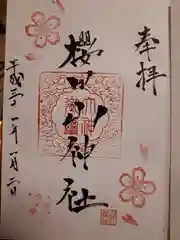 奉拝
櫻田山神社
平成三十一年一月二日